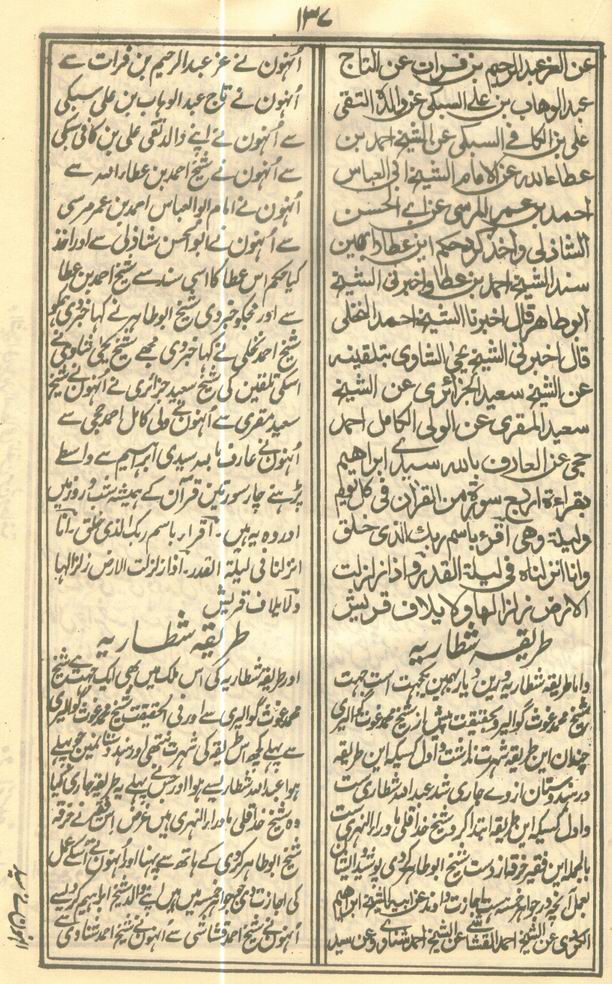 ١٣٧
عن العز عبد الرحيم بن فرات عن التاج
عبد الوهاب بن علي السبكي عن والده التقي
علي بن الكافي السبكي عن الشيخ احمد بن
عطاء الله عن الامام الشيخ ابي العباس
احمد بن عمر المرسي عن ابي الحسن
الشاذلي واخذ كرد حكم ابن عطا را بهمين
سند الشيخ احمد بن عطا واخبرني الشيخ
ابو طاهر قال اخبرنا الشيخ احمد النخلي
قال اخبرني الشيخ يحيى الشاوي بتلقينه
عن الشيخ سعيد الجزائري عن الشيخ
سعيد المقري عن الولي الكامل احمد
حجي عن العارف بالله سيدي ابراهيم
بقراءة اربع سورة من القران في كل يوم
وليلة وهي اقرء باسم ربك الذي خلق
وانا انزلناه في ليلة القدر واذا زلزلت
الارض زلزالها ولايلاف قريش
طریقه شطاریه
واما طریقه شطاریه درین دیار بهمین یکجهت است جهت
شیخ محمد غوث گوالیری و بحقیقت پیش از شیخ محمد غوث گوالیری
چندان این طریقه شهرت نداشت و اول کسیکه این طریقه
در هندوستان از وے جاری شد عبد الله شطاری ست
و اول کسیکه این طریقه ابتدا کرد شیخ خدا قلی ماوراء النهری ست
بالجمله این فقیر خرقه از دست شیخ ابو طاهر کردی پوشید ایشان
بعمل آنچه در جواهر خمسه ست اجازت دادند عن ابیه الشیخ ابراهیم
الکردی عن الشیخ احمد القشاشی عن الشیخ احمد شناوی عن سید
اُنہون نے عز عبد الرحیم بن فرات سے
اُنہون نے تاج عبد الوہاب بن علی سبکی
سے اُنہون نے اپنے والد تقی علی بن کافی سبکی
سے اُنہون نے شیخ احمد بن عطاء اللہ سے
اُنہون نے امام ابو العباس احمد بن عمر مرسی
سے اُنہون نے ابو الحسن شاذلی سے اور اخذ
کیا حکم اس عطا کا اسی سند سے شیخ احمد بن عطا
سے اور مجکو خبر دی شیخ ابو طاہر نے کہا خبر دی ہمکو
شیخ احمد نخلی نے کہا خبر دی مجھے شیخ یحیی شاوی نے
اسکی تلقین کی شیخ سعید جزائری نے اُنہون نے شیخ
سعید مقری سے اُنہون نے ولی کامل احمد حجی سے
اُنہون نے عارف باللہ سیدی ابراہیم سے واسطے
پڑھنے چار سورتین قرآن کے ہمیشہ شب و روز مین
اور وہ یہ ہین ۔ اقراء باسم ربک الذی خلق ۔ انا
انزلنا فی لیلۃ القدر ۔ اذا زلزلت الارض زلزالہا
ولایلاف قریش
طریقہ شطاریہ
اور طریقہ شطاریہ کی اس ملک مین بھی ایک جہت ہے شیخ
محمد غوث گوالیری سے اور فی الحقیقت شیخ محمد غوث گوالیری
سے پہلے کچھ اس طریقہ کی شہرت نتھی اور ہندوستانمین جو پہلے
ہوا عبد اللہ شطار سے ہوا اور جسنے پہلے یہ طریقہ جاری کیا
وہ شیخ خدا قلی ماوراء النہری ہین غرض اس فقیر نے خرقہ
شیخ ابو طاہر کردی کے ہاتھ سے پہنا اور اُنہون نے اسکے عمل
کی اجازت دی جو جواہر خمسہ مین ہین اپنے والد شیخ ابراہیم کردی سے
اُنہون نے شیخ احمد قشاشی سے انہون نے شیخ احمد شناوی سے
انہون نے سید